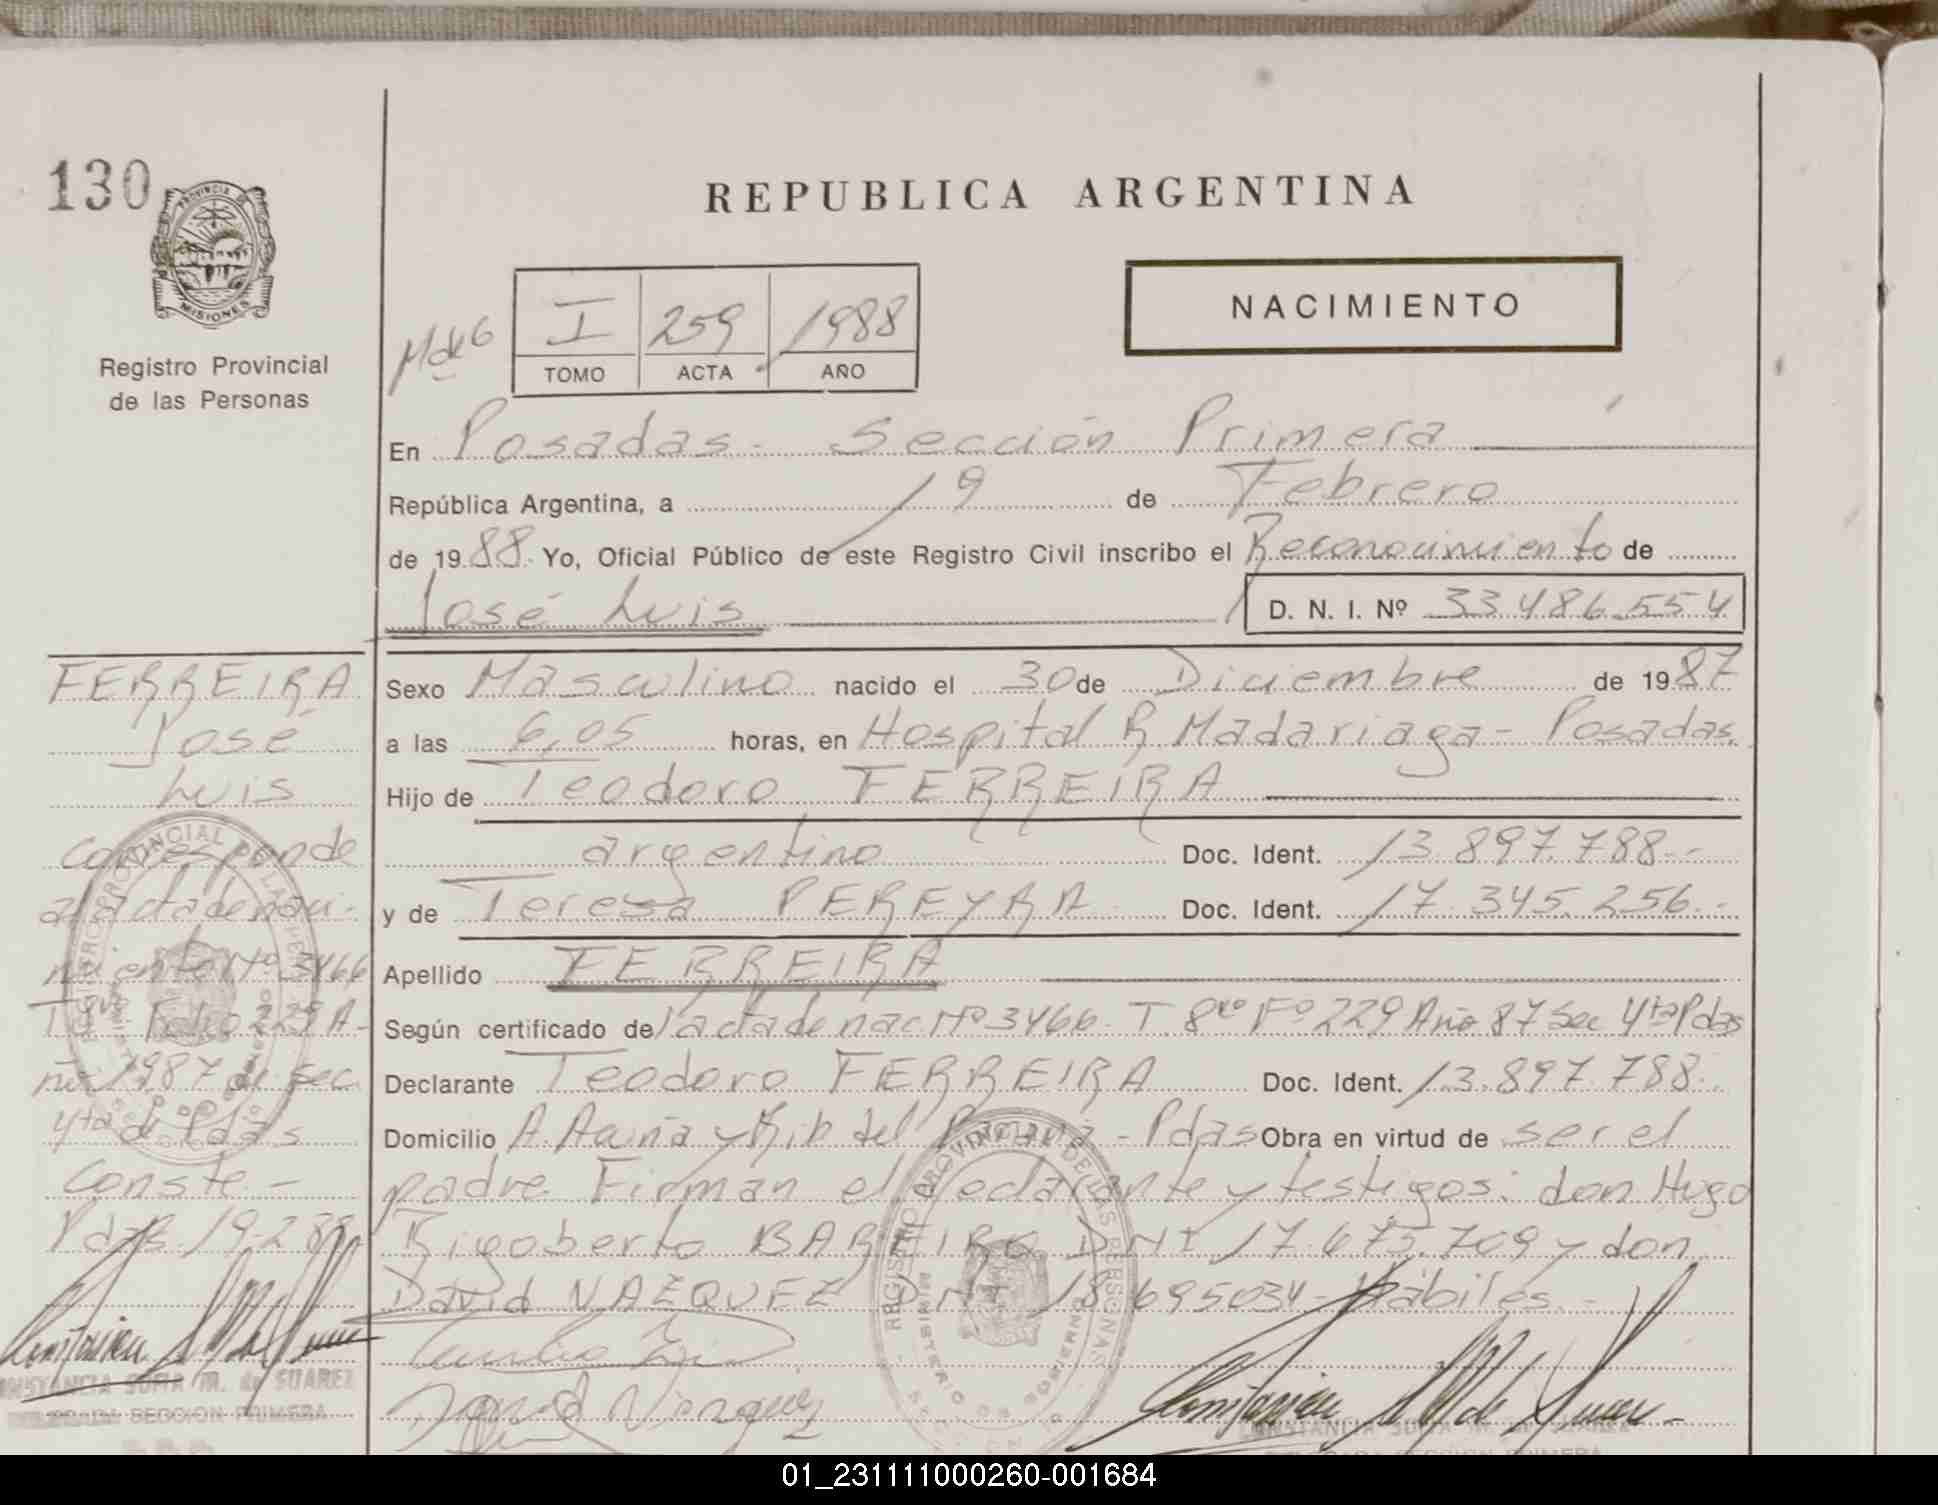 130
PROVINCIA DE
MISIONES
Registro Provincial
de las Personas
REPUBLICA ARGENTINA
NACIMIENTO
I 259 1988
TOMO ACTA AÑO
En Posadas - Sección Primera
República Argentina, a 19 de Febrero
de 1988. Yo, Oficial Público de este Registro Civil inscribo el Reconocimiento de
José Luis D. N. I. Nº 33.486.554
Sexo Masculino nacido el 30 de Diciembre de 1987
a las 6,05 horas, en Hospital R Madariaga - Posadas.
Hijo de Teodoro FERREIRA
argentino Doc. Ident. 13.897.788--
y de Teresa PEREYRA Doc. Ident. 17.345.256--
Apellido FERREIRA
Según certificado de l'acta de nac Nº 3466 T. 8vo Fº 229 Año 87 Sec 4ta Pdas
Declarante Teodoro FERREIRA Doc. Ident. 13.897.788
Domicilio A Acuña y Rib del Paraná - Pdas Obra en virtud de ser el
padre. Firman el declarante y testigos: don Hugo
Rigoberto BARREIRO DNI 17.675.709 y don
David VAZQUEZ DNI 18.695034 - Hábiles. -
David Vazquez
CONSTANCIA SOFIA M. de SUAREZ
FERREIRA
José
Luis
Corresponde
al acta de naci-
miento Nº 3466
Tº 8vo Folio 229 A-
ño 1987 de Sec.
4ta de Pdas
Conste -
Pdas 19-2-88
CONSTANCIA SOFIA M. de SUAREZ
SECCION PRIMERA
REGISTRO PROVINCIAL DE LAS PERSONAS
MINISTERIO DE GOBIERNO
01_231111000260-001684